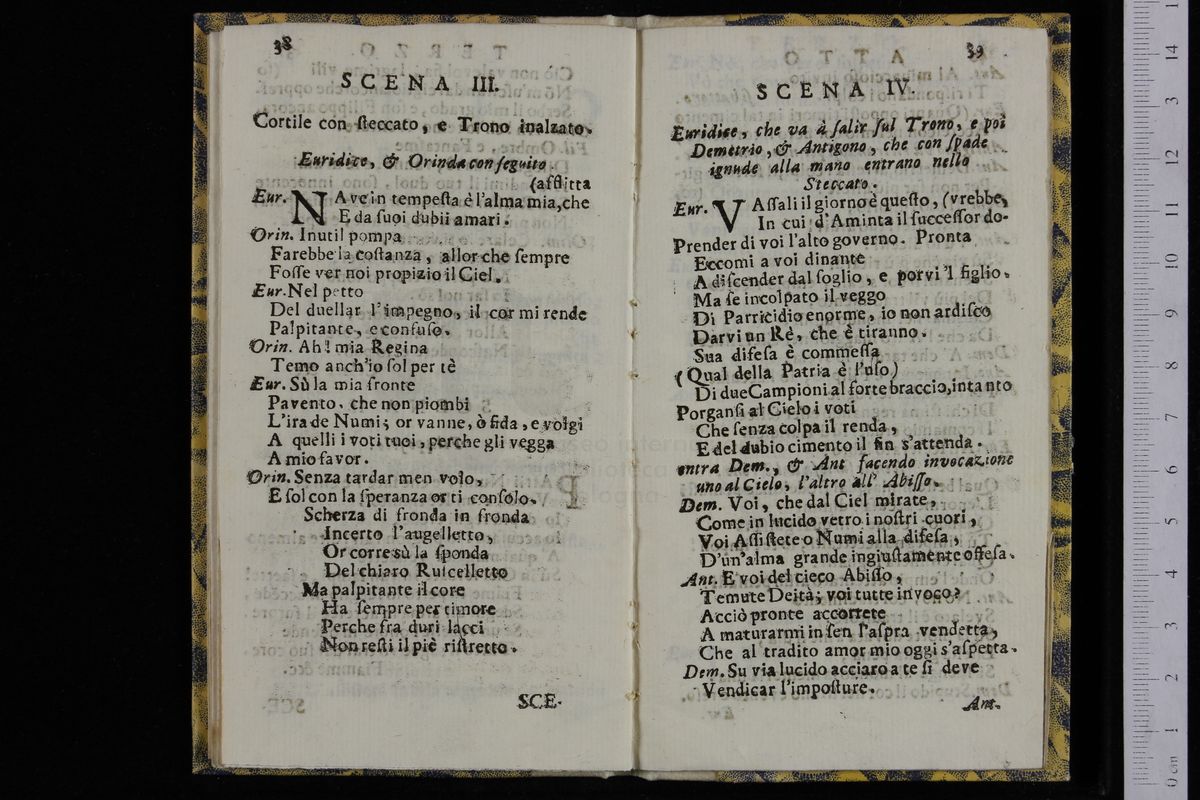 38
SCENA III.
Cortile con ſteccato, e Trono inalzato.
Euridice, & Orinda con ſeguito
(afflitta
Eur. NAve in tempeſta è l'alma mia, che
E da ſuoi dubii amari.
Orin. Inutil pompa
Farebbe la coſtanza, allor che ſempre
Foſſe ver noi propizio il Ciel.
Eur. Nel petto
Del duellar l'impegno, il cor mi rende
Palpitante, e confuſo.
Orin. Ah! mia Regina
Temo anch'io ſol per tè
Eur. Sù la mia fronte
Pavento, che non piombi
L'ira de Numi; or vanne, ò fida, e volgi
A quelli i voti tuoi, perche gli vegga
A mio favor.
Orin. Senza tardar men volo,
E ſol con la ſperanza or ti conſolo.
Scherza di fronda in fronda
Incerto l'augelletto,
Or corre sù la ſponda
Del chiaro Ruſcelletto
Ma palpitante il core
Ha ſempre per timore
Perche fra duri lacci
Non reſti il piè riſtretto.
SCE-
39
SCENA IV.
Euridice, che va à ſalir ſul Trono, e poi
Demetrio, & Antigono, che con ſpade
ignude alla mano entrano nello
Steccato.
Eur. VAſſali il giorno è queſto, (vrebbe,
In cui d'Aminta il ſucceſſor do-
Prender di voi l'alto governo. Pronta
Eccomi a voi dinante
A diſcender dal ſoglio, e porvi 'l figlio.
Ma ſe incolpato il veggo
Di Parricidio enorme, io non ardiſco
Darvi un Rè, che è tiranno.
Sua difeſa è commeſſa
(Qual della Patria è l'uſo)
Di due Campioni al forte braccio, intanto
Porganſi al Cielo i voti
Che ſenza colpa il renda,
E del dubio cimento il fin s'attenda.
entra Dem., & Ant facendo invocazione
uno al Cielo, l'altro all' Abiſſo.
Dem. Voi, che dal Ciel mirate,
Come in lucido vetro i noſtri cuori,
Voi Aſſiſtete o Numi alla difeſa,
D'un'alma grande ingiuſtamente offeſa.
Ant. E voi del cieco Abiſſo,
Temute Deità; voi tutte invoco?
Acciò pronte accorrete
A maturarmi in ſen l'aſpra vendetta,
Che al tradito amor mio oggi s'aſpetta.
Dem. Su via lucido acciaro a te ſi deve
Vendicar l'impoſture.
Ant.